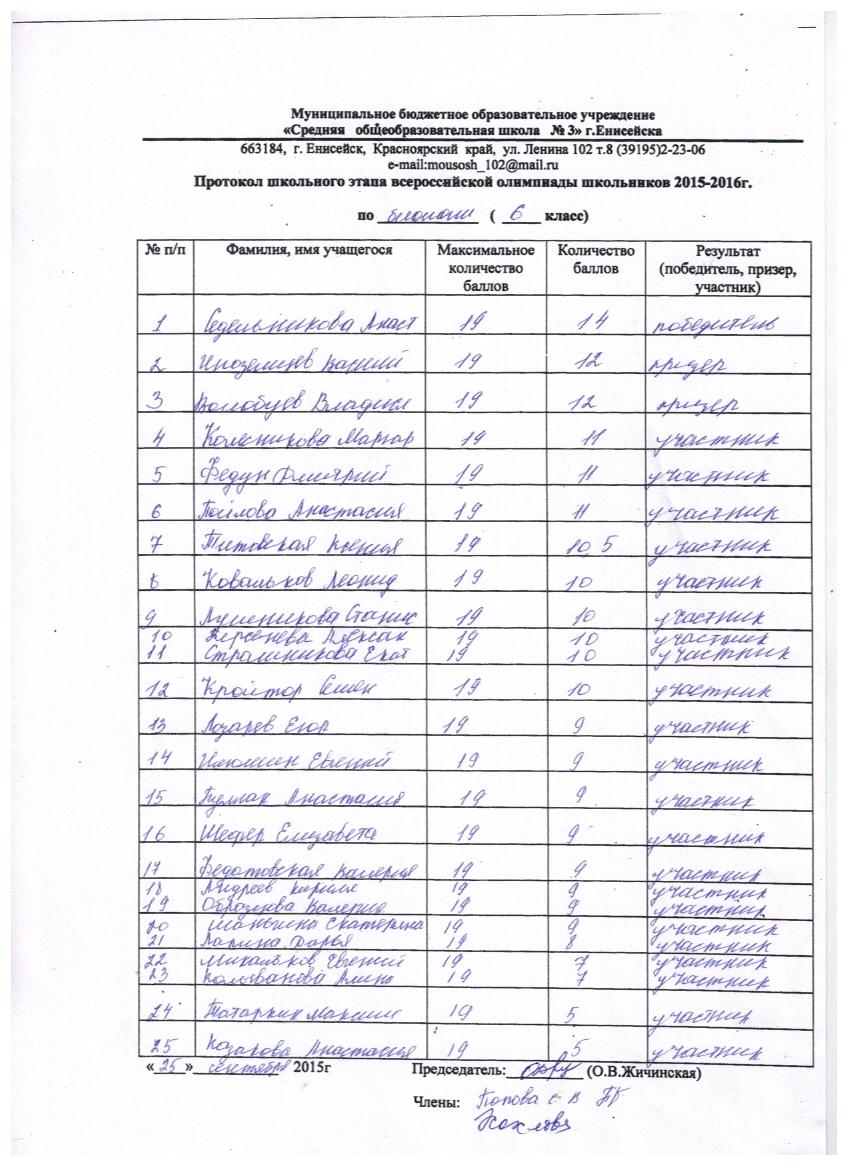 Муниципальное бюджетное образовательное учреждение
«Средняя общеобразовательная школа № 3» г.Енисейска
663184, г. Енисейск, Красноярский край, ул. Ленина 102 т.8 (39195)2-23-06
e-mail:mousosh_102@mail.ru
Протокол школьного этапа всероссийской олимпиады школьников 2015-2016г.
по биологии ( 6 класс)
№ п/п Фамилия, имя учащегося Максимальное количество баллов Количество баллов Результат (победитель, призер, участник)
1 Седельникова Анаст 19 14 победитель
2 Иноземцев 19 12 призер
3 Волобуев Владисл 19 12 призер
4 Колесникова Маргар 19 11 участник
5 Федун Дмитрий 19 11 участник
6 Анастасия 19 11 участник
7 Титовская Ксения 19 10,5 участник
8 Ковальков Леонид 19 10 участник
9 Станис 19 10 участник
10 Керсенева Алексан 19 10 участник
11 Екат 19 10 участник
12 Кройтор Семен 19 10 участник
13 Лазарев Егор 19 9 участник
14 Евгений 19 9 участник
15 Анастасия 19 9 участник
16 Шефер Елизавета 19 9 участник
17 Федотовская Валерия 19 9 участник
18 Андреев Кирилл 19 9 участник
19 Образцова Валерия 19 9 участник
20 Шаньгина Екатерина 19 9 участник
21 Лапина Дарья 19 8 участник
22 Михальков Евгений 19 7 участник
23 Колыванова Алина 19 7 участник
24 Татаркин Максим 19 5 участник
25 Казакова Анастасия 19 5 участник
« 25 » сентября 2015г Председатель: (О.В.Жичинская)
Члены: Попова С В